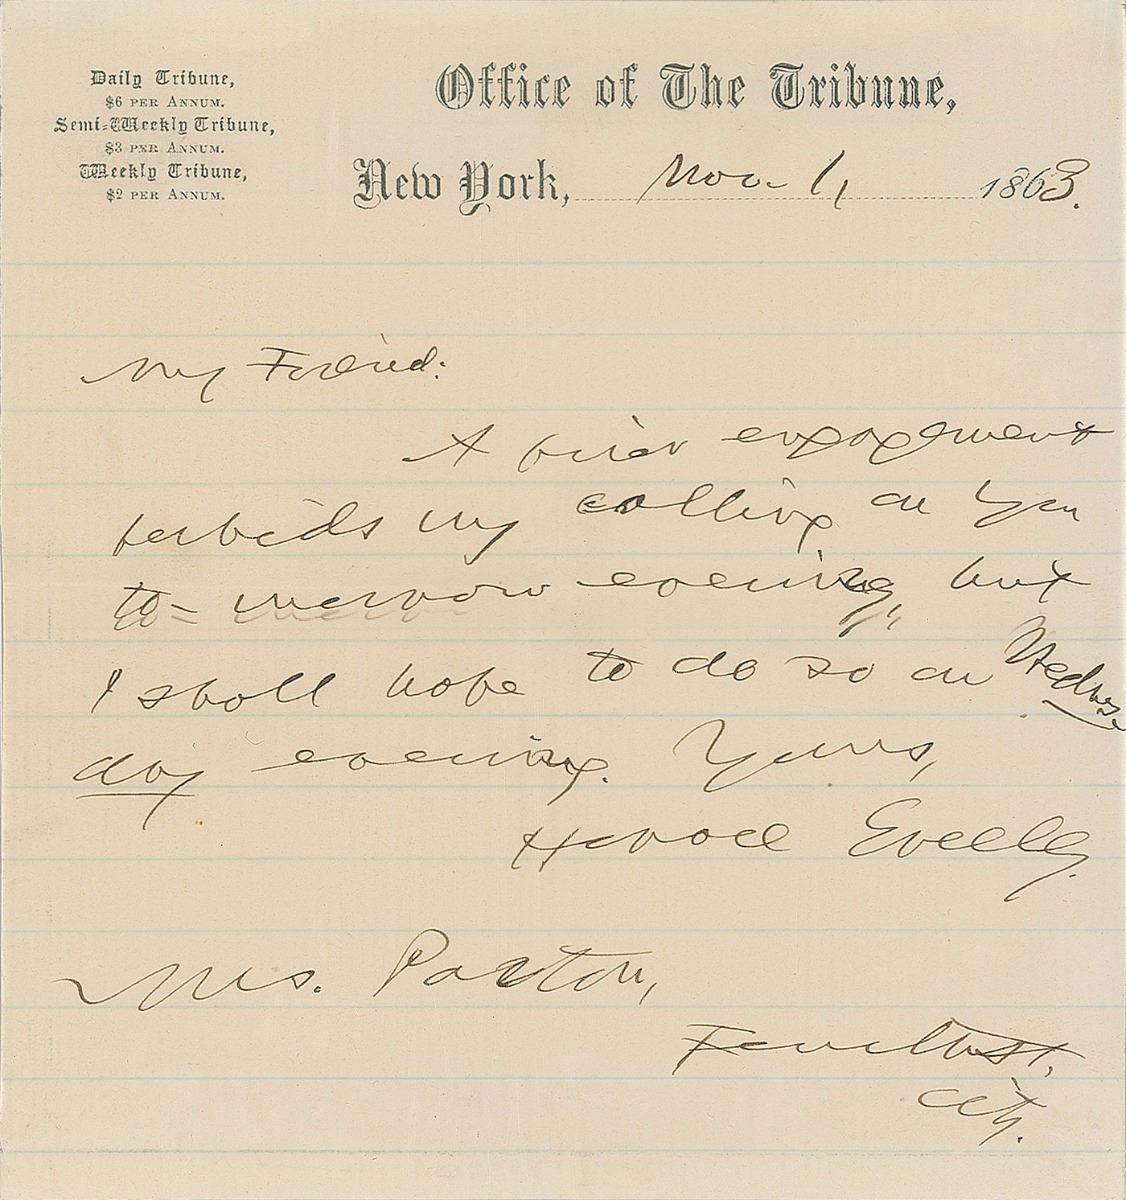 Daily Tribune,
$6 PER ANNUM.
Semi-Weekly Tribune,
$3 PER ANNUM.
Weekly Tribune,
$2 PER ANNUM.
Office of The Tribune,
New York, Nov. 1, 1863.
My Friend:
A prior engagement
forbids my calling on you
to-morrow evening, but
I shall hope to do so on Wednes-
day evening. Yours,
Horace Greeley.
Mrs.
Fourth st.
City.